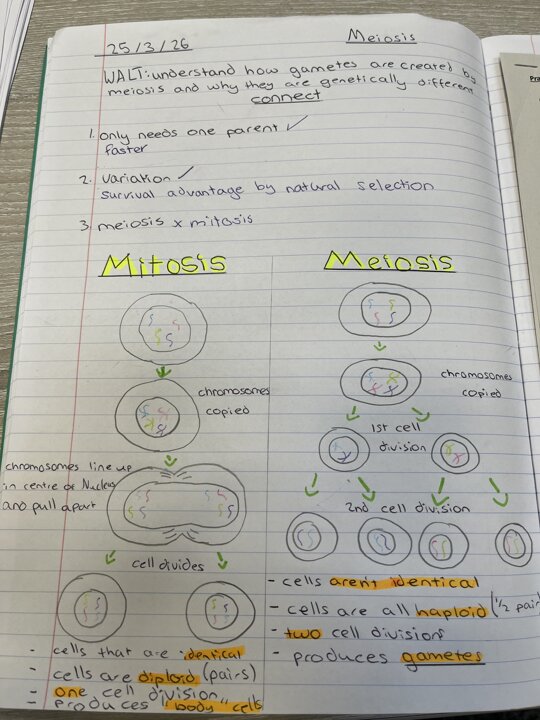 25/3/26
Meiosis
WALT: understand how gametes are created by
meiosis and why they are genetically different
connect
1. only needs one parent ✓
faster
2. variation ✓
survival advantage by natural selection
3. meiosis x mitosis
Mitosis
chromosomes
copied
chromosomes line up
in centre of Nucleus
and pull apart
cell divides
- cells that are identical
- cells are diploid (pairs)
- one cell division
- produces "body cells
Meiosis
chromosomes
copied
1st cell
division
2nd cell division
- cells aren't identical
- cells are all haploid (1/2 pair
- two cell divisions
- produces gametes